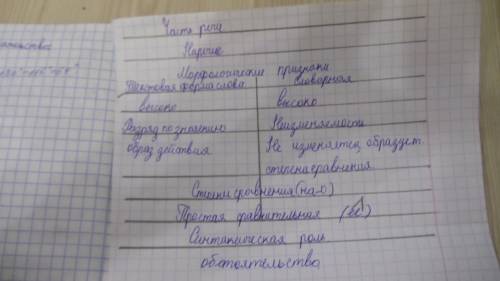 Часть речи
Наречие
Морфологические признаки
Текстовая форма слова
словарная
высоко
высоко
Разряд по значению
Неизменяемости
образ действия
Не изменяется, образует
степена сравнения
Степни сровнения (на-о)
Простая сравнительная
Синтаксическая роль
обстоятельство